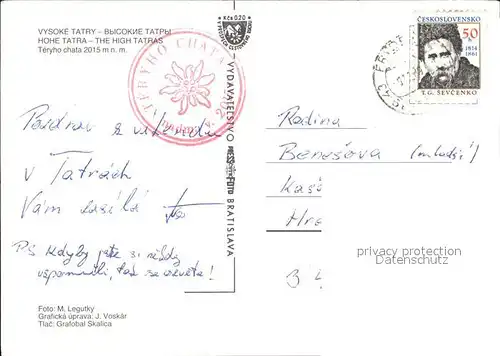 VYSOKÉ TATRY – ВЫСОКИЕ ТАТРЫ
HOHE TATRA – THE HIGH TATRAS
Téryho chata 2015 m n. m.
Kčs 0,20
TÉRYHO CHATA
ČESKOSLOVENSKO
50 h
1814
1861
T. G. ŠEVČENKO
VYDAVATEĽSTVO PRESSFOTO BRATISLAVA
Pozdrav z víkendu
v Tatrách
Vám zasílá
PS Kdyby jste si někdy
vzpomněli, tak se ozvěte!
Rodina
Benešova (mladší)
privacy protection
www.ansichtskartenversand.com
Foto: M. Legutky
Grafická úprava: J. Voskár
Tlač: Grafobal Skalica